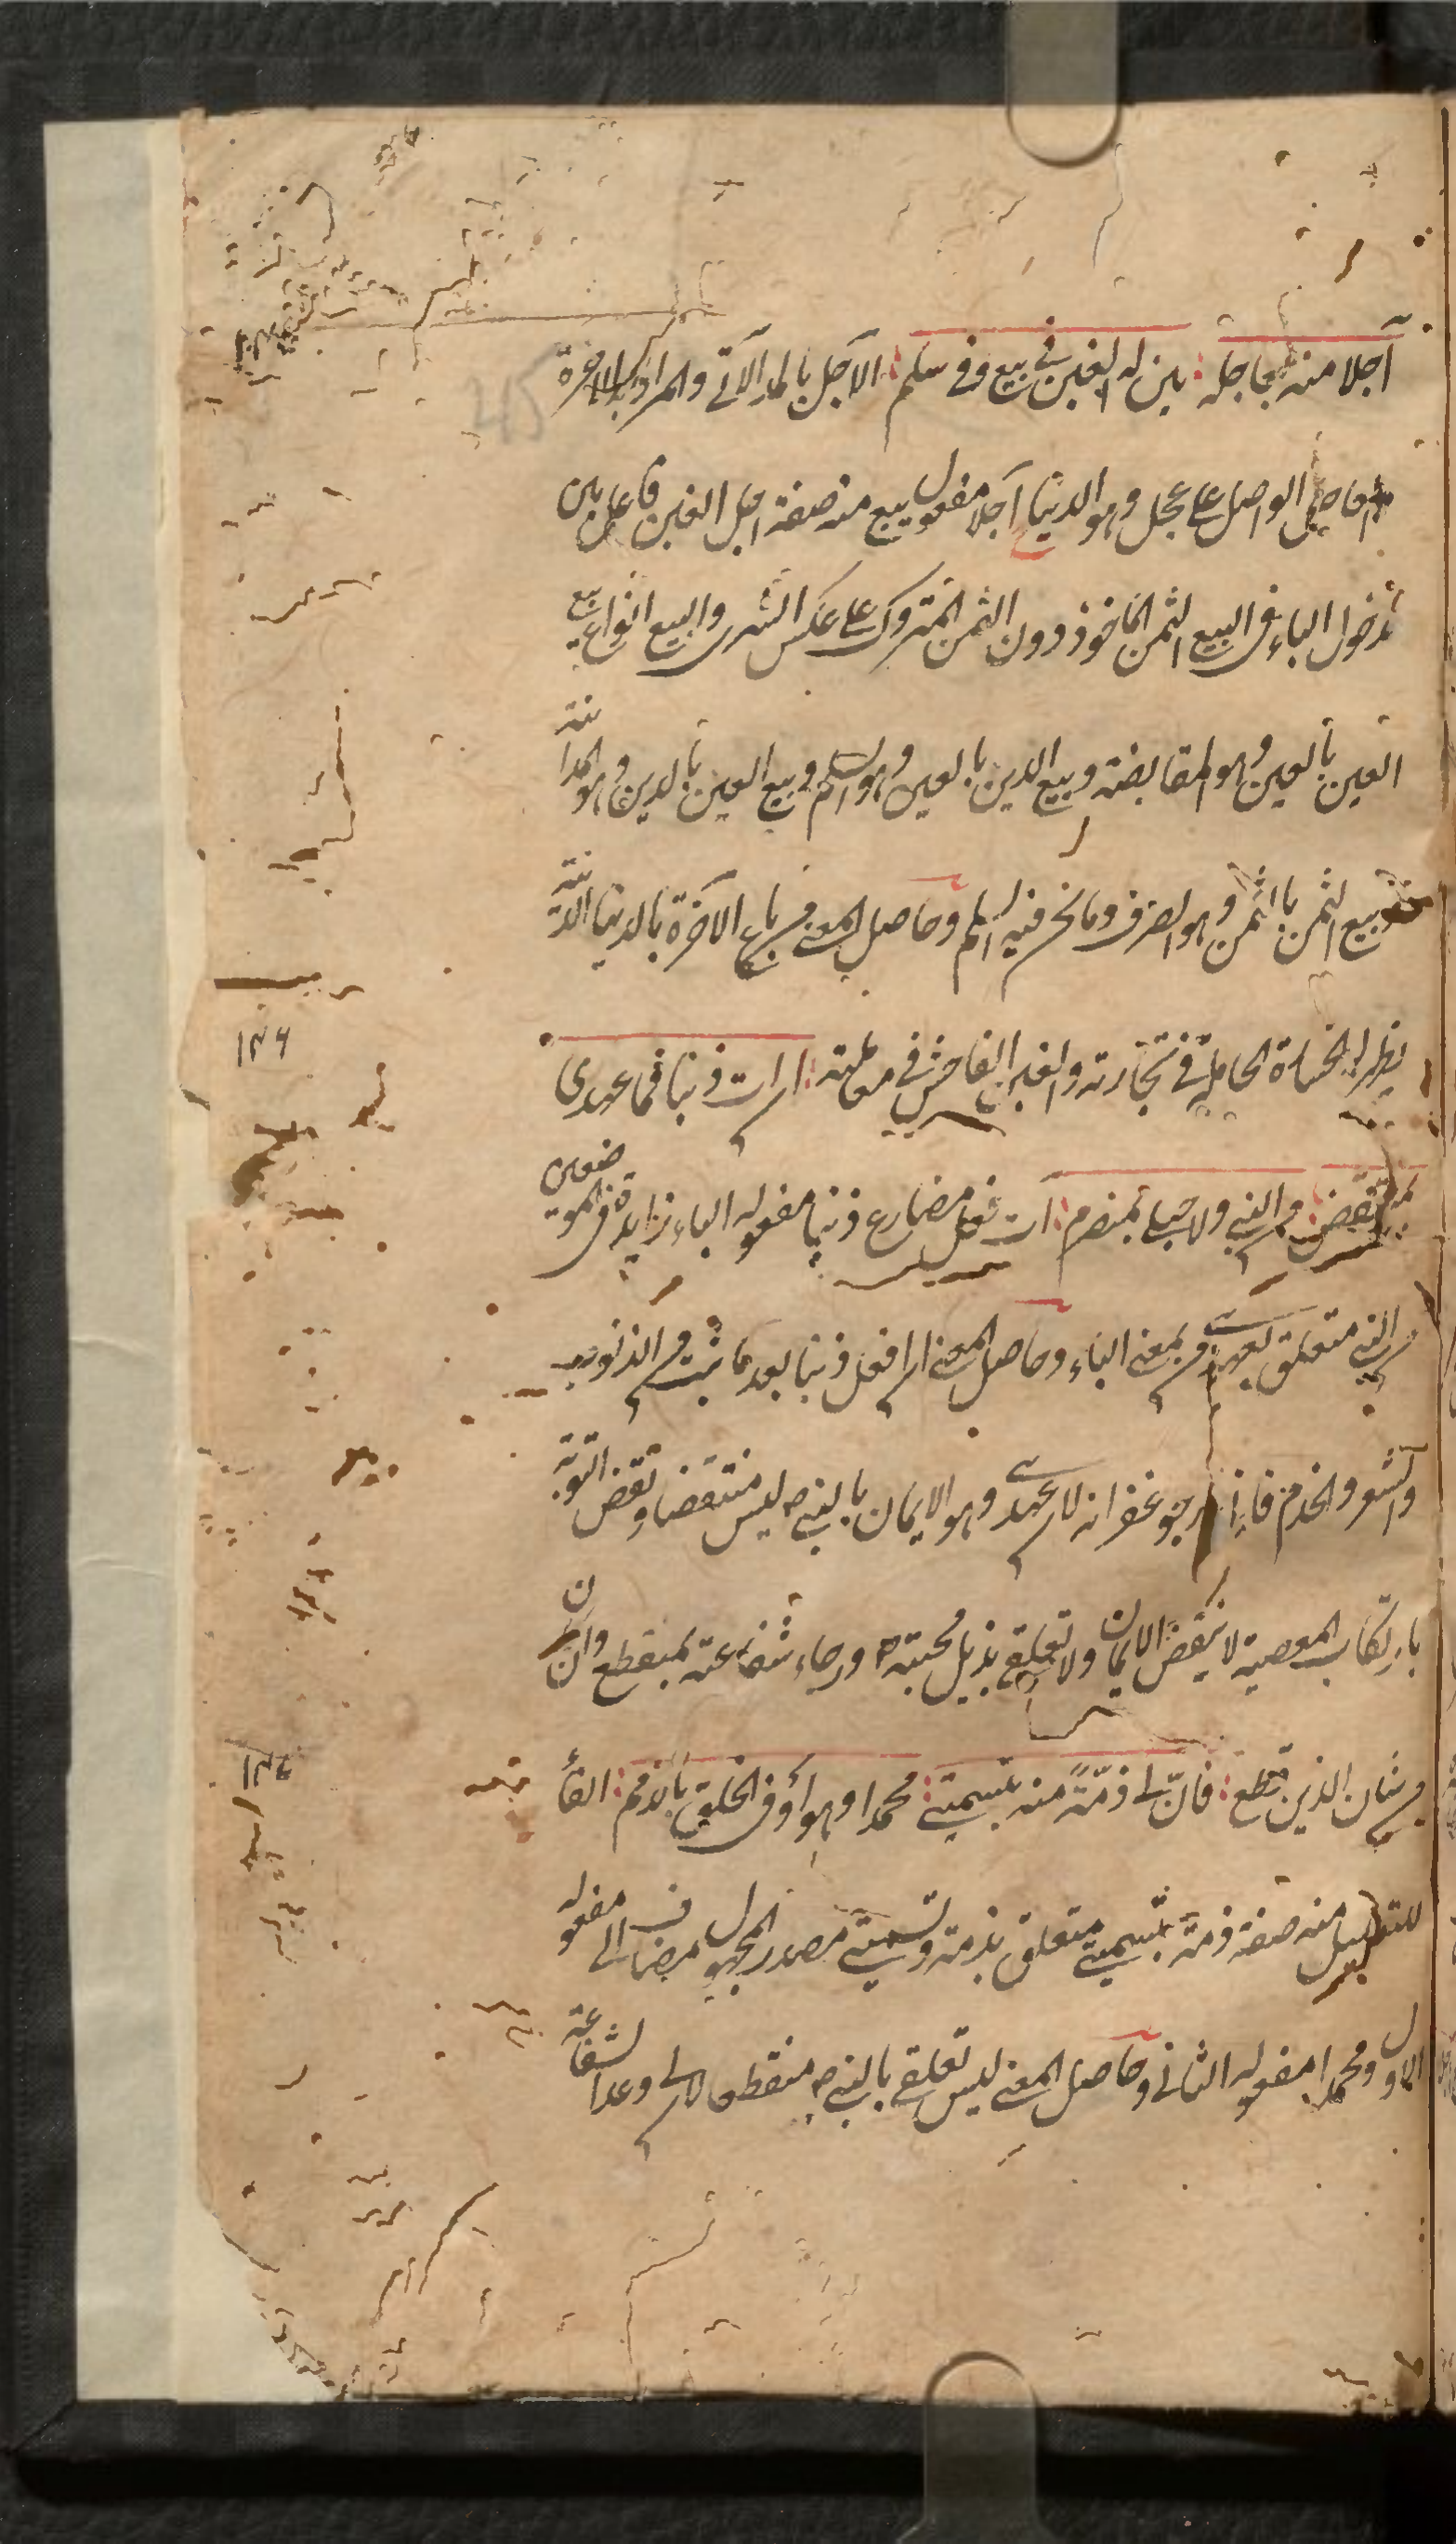 آجلا منه بعاجله : يبن له الغبن فى بيع وفى سلم : الآجل بالمد الآتى والمراد به الآخرة
العاجل الواصل على عجل وهو الدنيا آجلا مفعول يبع منه صفة اجل الغبن فاعل يبن
دخول الباء فى البيع الثمن المأخوذ دون الثمن المتروك على عكس الشرى والبيع انواع بيع
العين بالعين وهو المقايضة وبيع الدين بالعين وهو السلم وبيع العين بالدين وهو المداينة
وبيع الثمن بالثمن وهو الصرف وما نحن فيه السلم وحاصل المعنى من باع الآخرة بالدنيا الدنية
يظهر له الخسارة الحاصلة فى تجارته والغبن الفاحش فى معاملته : ان ات ذنبا فما عهدى
بمنتقض : من النبى ولا حبلى بمنصرم : آت فعل مضارع ذنبا مفعوله الباء زايدة فى الموضعين
من النبى متعلق بعهدى من بمعنى الباء وحاصل المعنى ان افعل ذنبا بعد ما تبت من الذنوب
والشعر والخدم فانى ارجو غفرانه لان عهدى وهو الايمان بالنبى ص ليس منتقضا ونقض التوبة
بارتكاب المعصية لا ينقض الايمان ولا تعلق بذيل محبته ص ورجاء شفاعته بمنقطع وان كان
من شان الذين قطع : فان لى ذمة منه بتسميتى : محمدا وهو أوفى الخلق بالذمم : الفاء
للتعليل منه صفة ذمة بتسميتى متعلق بذمة وتسميتى مصدر المجهول مضاف الى مفعوله
الاول ومحمدا مفعوله الثانى وحاصل المعنى ليس تعلقى بالنبى ص منقطعا لان لى وعد الشفاعة
۱۳۶